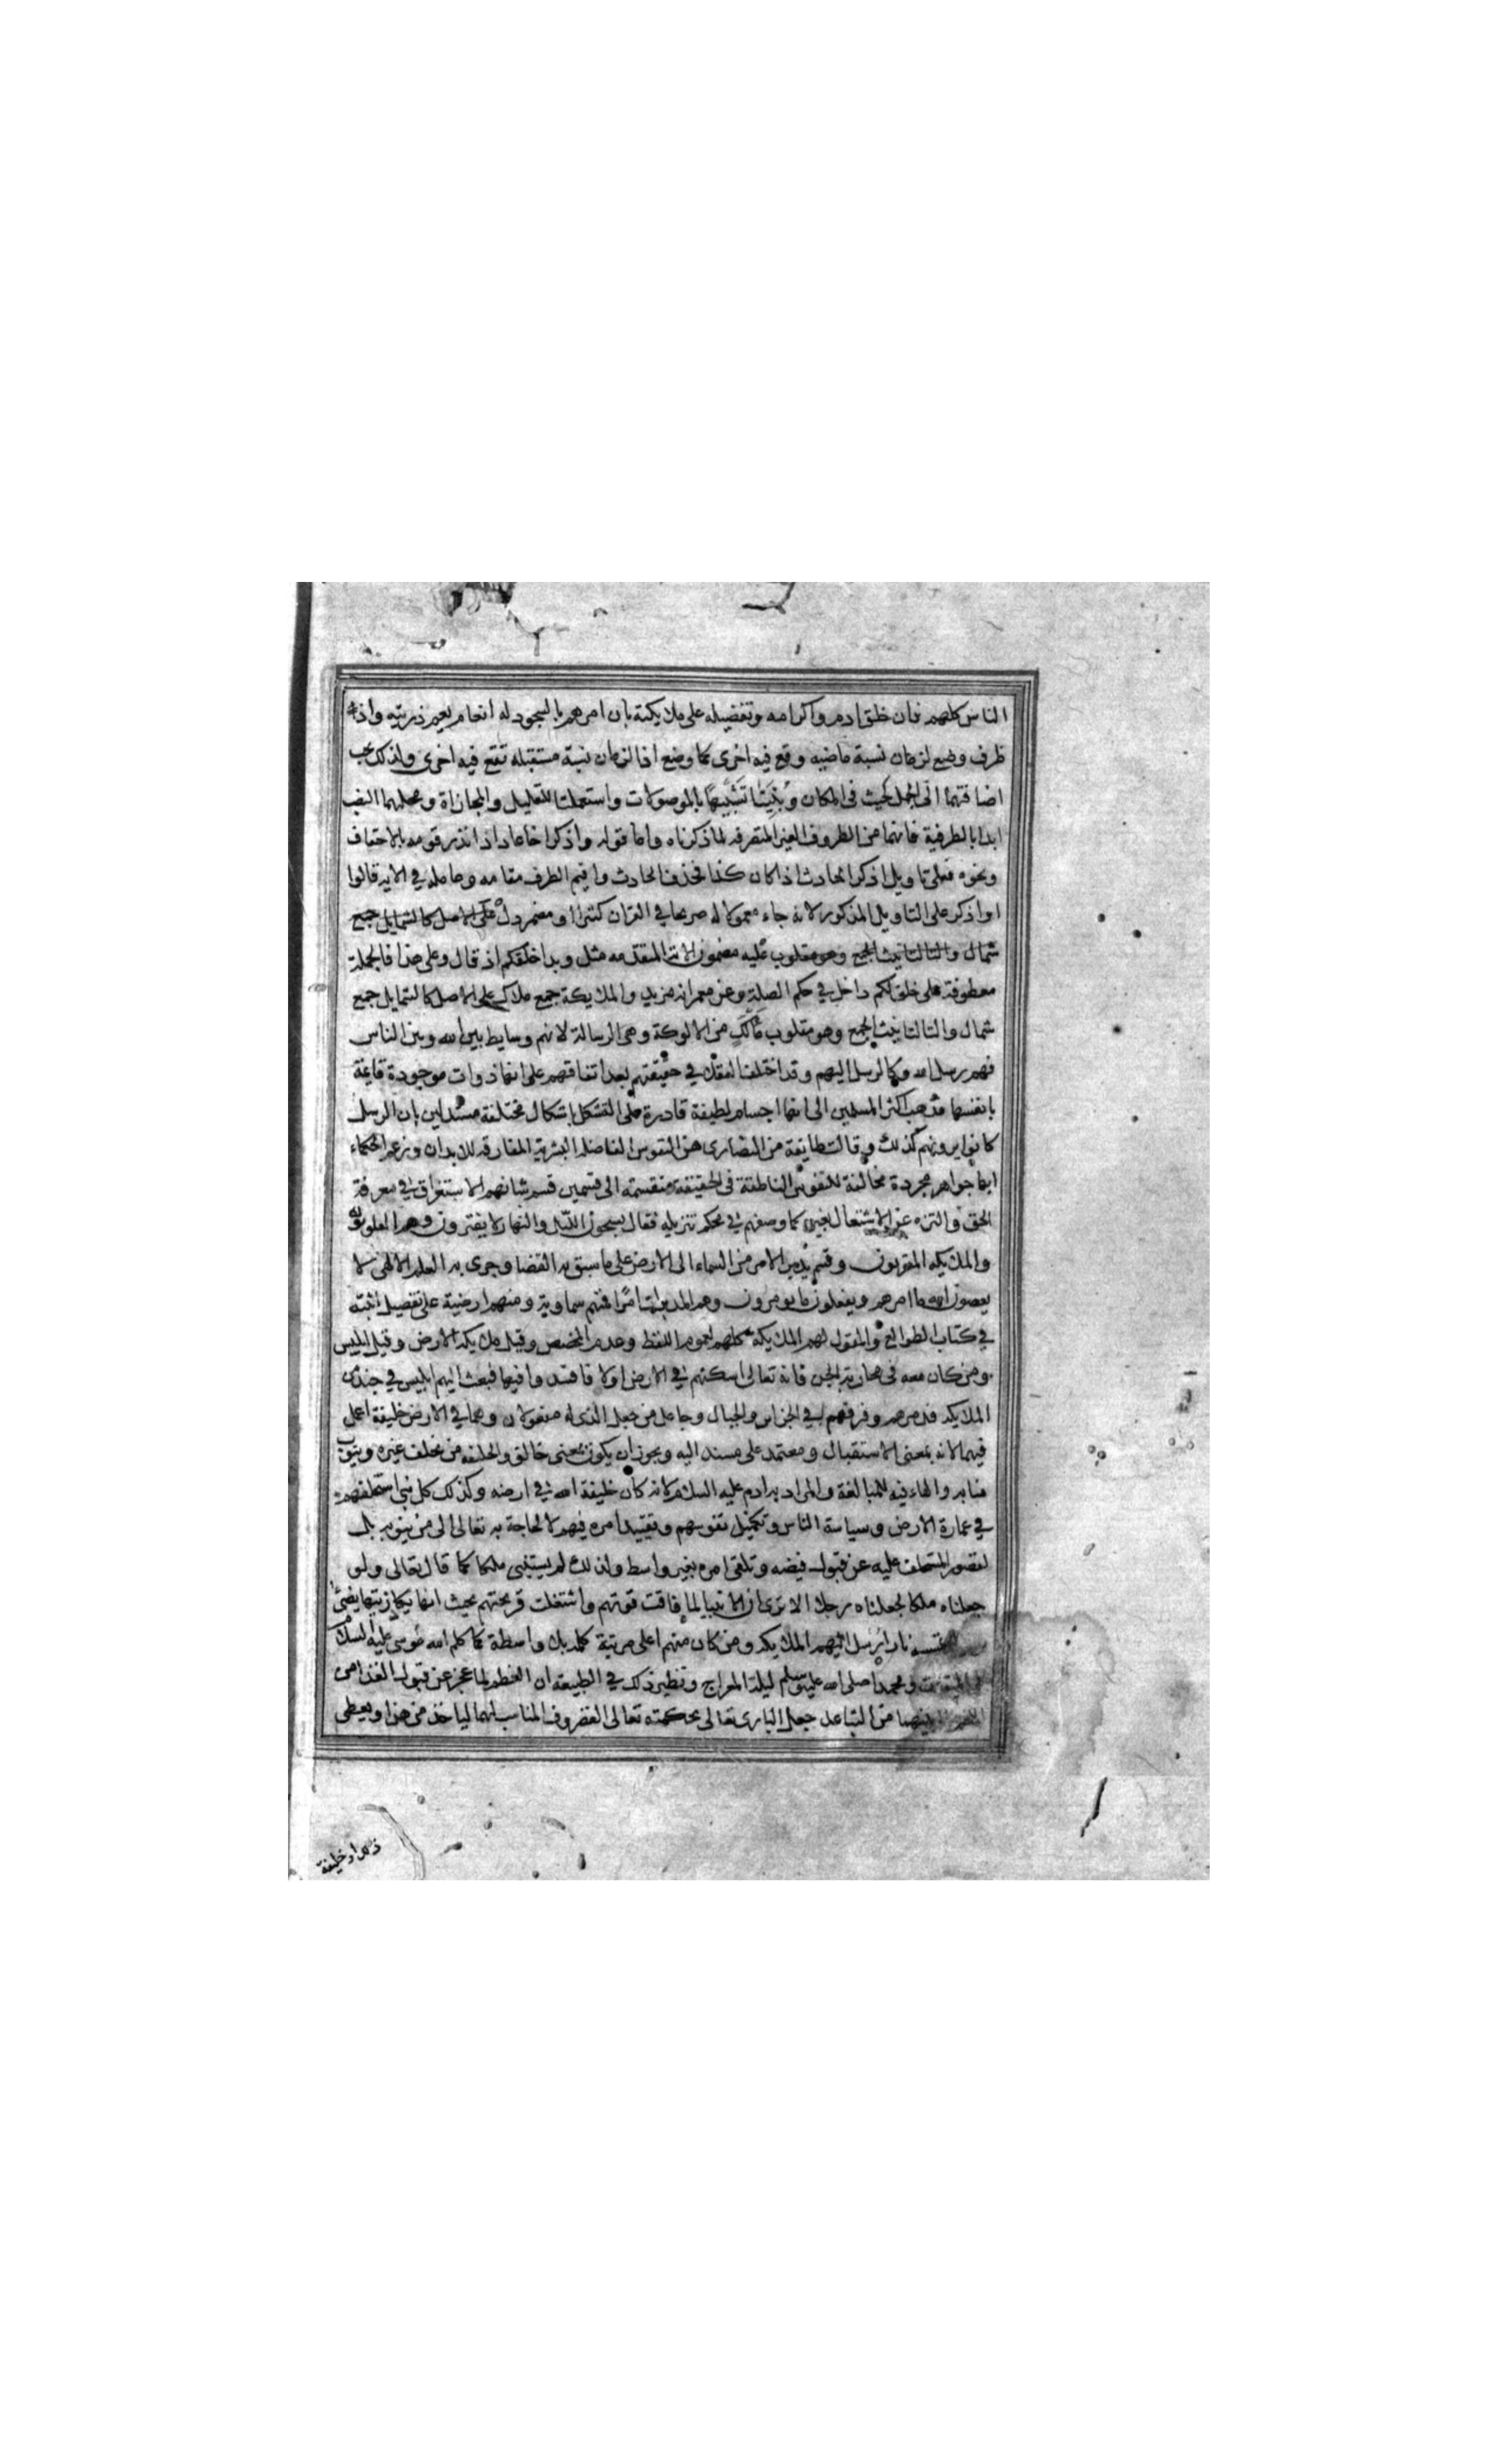 الناس كلهم فان خلق ادم واكرامه وتفضيله على ملايكته بان امرهم بالسجود له انعام يعم ذريته واذ
ظرف وضع لزمان نسبة ماضيه وقع فيه اخرى كما وضع اذا لزمان نسبة مستقبله تقع فيه اخرى ولذلك يجب
اضافتهما الى الجمل كحيث فى المكان وبنيتا تشبيها بالموصولات واستعملتا للتعليل والمجازاة ومحلهما النصب
ابدا بالظرفية فانهما من الظروف الغير المتصرفه لما ذكرناه واما قوله واذكر اخا عاد اذ انذر قومه بالاحقاف
ونحوه فعلى تاويل اذكر الحادث اذ كان كذا فحذف الحادث واقيم الظرف مقامه وعامله في الايه قالوا
او اذكر على التاويل المذكور لانه جاء معمولا له صريحا في القران كثيرا او مضمر دل على الاصل كالشمايل جمع
شمال والتا لتانيث الجمع وهو مقلوب عليه مضمون الاية المتقدمه مثل وبدا خلقكم اذ قال وعلى هذا فالجملة
معطوفة على خلق لكم داخل في حكم الصلة وعن معمر انه مزيد والملايكة جمع ملاك على الاصل كالشمايل جمع
شمال والتا لتانيث الجمع وهو مقلوب مألك من الالوكة وهى الرسالة لانهم وسايط بين الله وبين الناس
فهم رسل الله وكالرسل اليهم وقد اختلف العقلا في حقيقتهم بعد اتفاقهم على انها ذوات موجودة قايمة
بانفسها فذهب اكثر المسلمين الى انها اجسام لطيفة قادرة على التشكل باشكال مختلفة مستدلين بان الرسل
كانوا يرونهم كذلك وقالت طايفة من النصارى هى النفوس الفاضله البشرية المفارقه للابدان وزعم الحكماء
انها جواهر مجردة مخالفة للنفوس الناطقة فى الحقيقة منقسمة الى قسمين قسم شانهم الاستغراق في معرفة
الحق والتنزه عن الاشتغال بغيره كما وصفهم في محكم تنزيله فقال يسبحون الليل والنهار لا يفترون وهم العلويون
والملايكه المقربون وقسم يدبر الامر من السماء الى الارض على ما سبق به القضا وجرى به القلم الالهى لا
يعصون الله ما امرهم ويفعلون ما يومرون وهم المدبرات امرا فمنهم سماوية ومنهم ارضية على تفصيل اثبته
في كتاب الطوالع والمقول لهم الملايكة كلهم لعموم اللفظ وعدم المخصص وقيل ملايكة الارض وقيل ابليس
ومن كان معه فى محاربة الجن فانه تعالى اسكنهم في الارض اولا فافسدوا فيها فبعث اليهم ابليس في جند من
الملايكه فدمرهم وفرقهم في الجزاير والجبال وجاعل من جعل الذى له مفعولان وهما في الارض خليفة اعمل
فيهما لانه بمعنى الاستقبال ومعتمد على مسند اليه ويجوز ان يكون بمعنى خالق والخليفه من يخلف غيره وينوب
منابه والهاء فيه للمبالغة والمراد به ادم عليه السلام لانه كان خليفة الله في ارضه وكذلك كل نبى استخلفهم
في عمارة الارض وسياسة الناس وتكميل نفوسهم وتنفيذ امره فيهم لا لحاجة به تعالى الى من ينوبه بل
لقصور المستخلف عليه عن قبول فيضه وتلقى امره بغير واسط ولذلك لم يستنبى ملكا كما قال تعالى ولو
جعلناه ملكا لجعلناه رجلا الا ترى ان الانبيا لما فاقت قوتهم واشتعلت قريحتهم بحيث انها يكاد زيتها يضئ
تمسسه نار ارسل اليهم الملايكه ومن كان منهم اعلى مرتبة كلمه بلا واسطة كما كلم الله موسى عليه السلام
الميقات ومحمدا صلى الله عليه وسلم ليلة المعراج ونظير ذلك في الطبيعة ان العظم لما عجز عن قبول الغذا من
بينهما من التباعد جعل البارى تعالى بحكمته تعالى الغضروف المناسب لهما لياخذ من هذا ويعطى